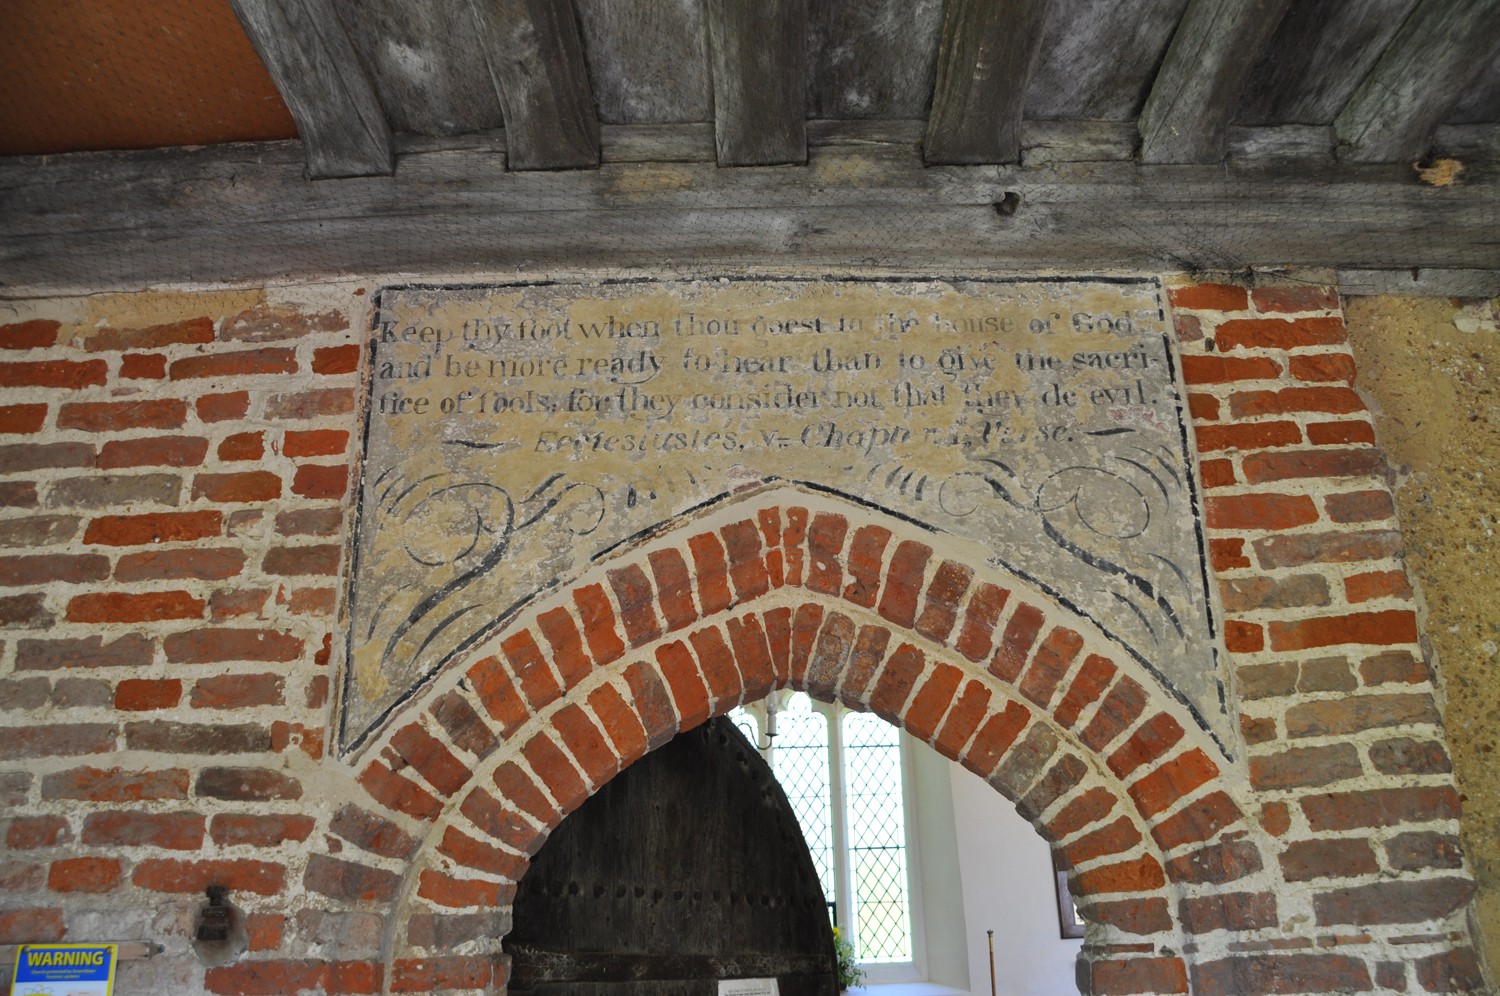 Keep thy foot when thou goest to the house of God,
and be more ready to hear than to give the sacri-
fice of fools; for they consider not that they do evil.
Ecclesiastes, v. Chapter 1, Verse.
WARNING